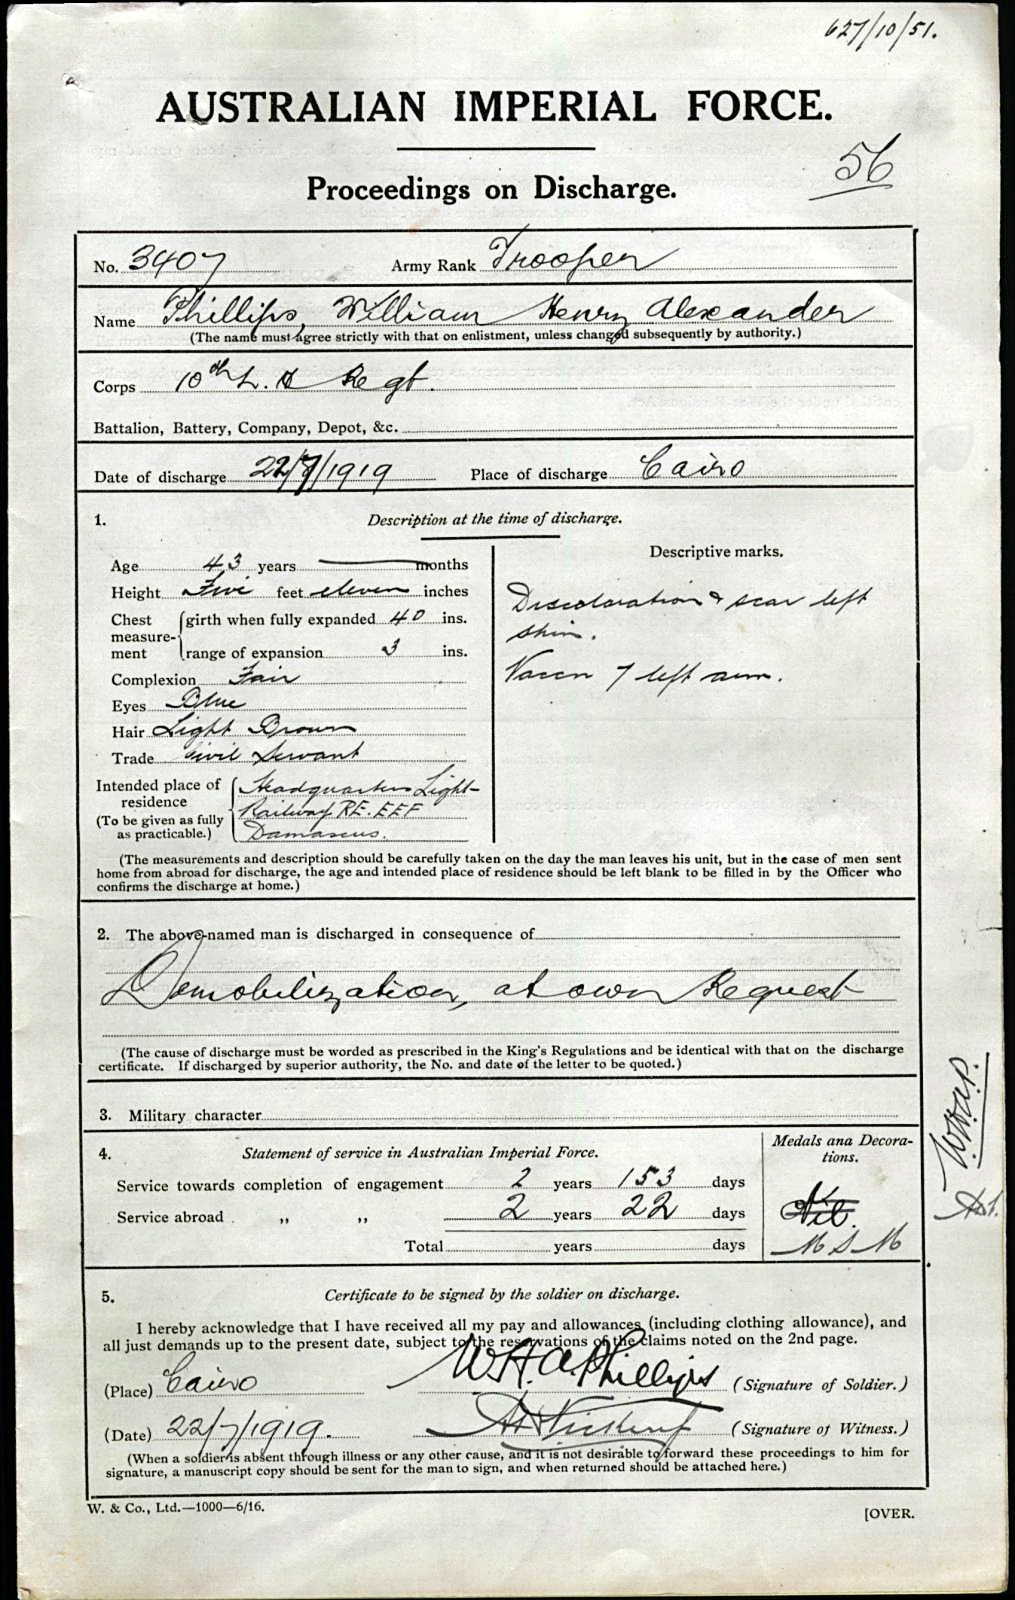 627/10/51.
AUSTRALIAN IMPERIAL FORCE.
56
Proceedings on Discharge.
No. 3407 Army Rank Trooper
Name Phillips, William Henry Alexander
(The name must agree strictly with that on enlistment, unless changed subsequently by authority.)
Corps 10th L. H Regt.
Battalion, Battery, Company, Depot, &c.
Date of discharge 22/7/1919 Place of discharge Cairo
1. Description at the time of discharge.
Age 43 years months
Height Five feet eleven inches
Chest measurement girth when fully expanded 40 ins.
range of expansion 3 ins.
Complexion Fair
Eyes Blue
Hair Light Brown
Trade Civil Servant
Intended place of residence Headquarters Light
(To be given as fully Railway RE. EEF
as practicable.) Damascus.
Descriptive marks.
Discoloration & scar left
shin.
Vaccn 7 left arm.
(The measurements and description should be carefully taken on the day the man leaves his unit, but in the case of men sent
home from abroad for discharge, the age and intended place of residence should be left blank to be filled in by the Officer who
confirms the discharge at home.)
2. The above-named man is discharged in consequence of
Demobilization, at own Request
(The cause of discharge must be worded as prescribed in the King's Regulations and be identical with that on the discharge
certificate. If discharged by superior authority, the No. and date of the letter to be quoted.)
3. Military character
4. Statement of service in Australian Imperial Force.
Service towards completion of engagement 2 years 153 days
Service abroad " " 2 years 22 days
Total years days
Medals and Decora-
tions.
Nil.
M S M
5. Certificate to be signed by the soldier on discharge.
I hereby acknowledge that I have received all my pay and allowances (including clothing allowance), and
all just demands up to the present date, subject to the reservations of the claims noted on the 2nd page.
(Place) Cairo W.H.A. Phillips (Signature of Soldier.)
(Date) 22/7/1919. (Signature of Witness.)
(When a soldier is absent through illness or any other cause, and it is not desirable to forward these proceedings to him for
signature, a manuscript copy should be sent for the man to sign, and when returned should be attached here.)
W. & Co., Ltd.—1000—6/16.
[OVER.